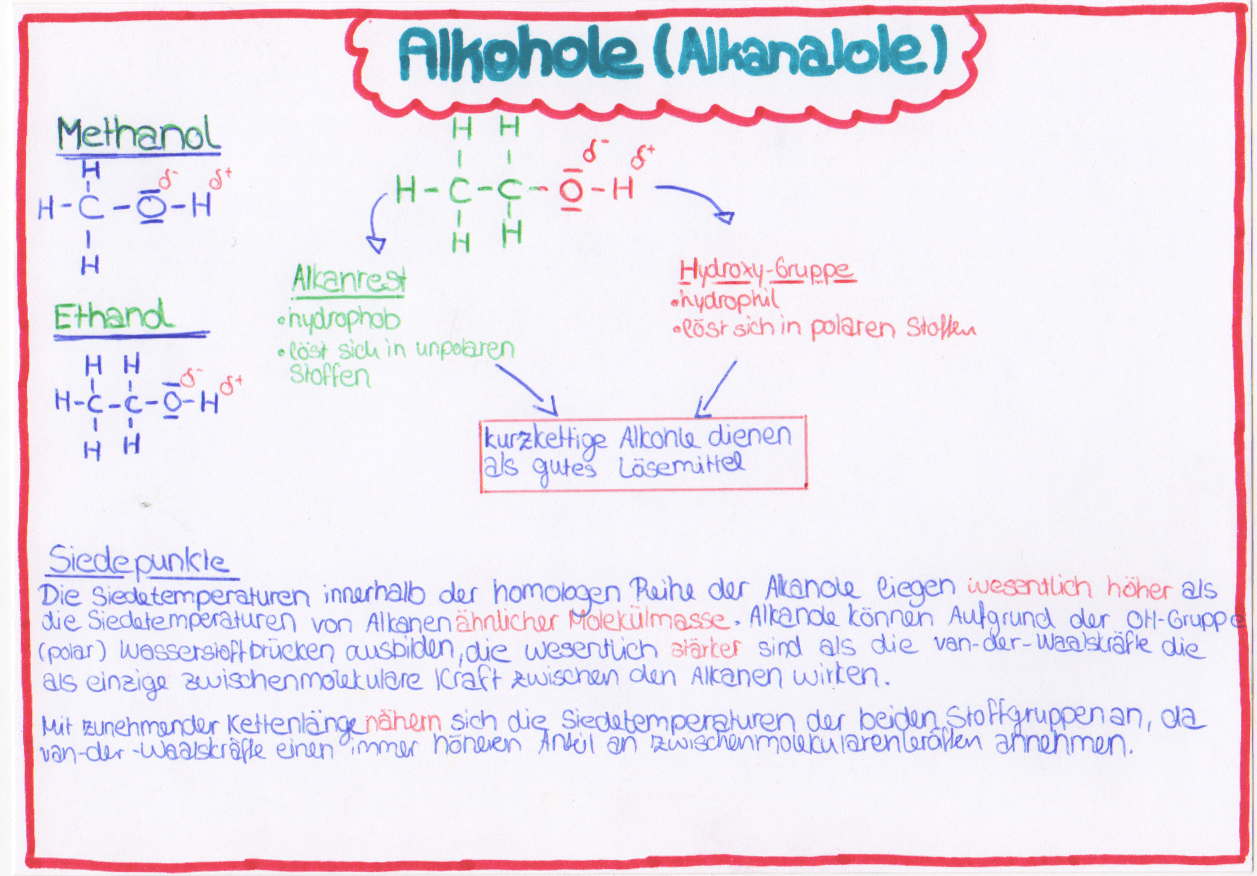 Alkohole (Alkanalole)
Methanol
H
H-C-O-H
δ- δ+
H
Ethanol
H H
H-C-C-O-H
δ- δ+
H H
H H
H-C-C-O-H
δ- δ+
H H
Alkanrest
•hydrophob
•löst sich in unpolaren
Stoffen
Hydroxy-Gruppe
•hydrophil
•löst sich in polaren Stoffen
kurzkettige Alkohle dienen
als gutes Läsemittel
Siedepunkte
Die Siedetemperaturen innerhalb der homologen Reihe der Alkanole liegen wesentlich höher als
die Siedetemperaturen von Alkanen ähnlicher Molekülmasse. Alkanole können Aufgrund der OH-Gruppe
(polar) Wasserstoffbrücken ausbilden, die wesentlich stärker sind als die van-der-Waalskräfte die
als einzige zwischenmolekulare Kraft zwischen den Alkanen wirken.
Mit zunehmender Kettenlänge nähern sich die Siedetemperaturen der beiden Stoffgruppen an, da
van-der-Waalskräfte einen immer höheren Anteil an zwischenmolekularenkräften annehmen.